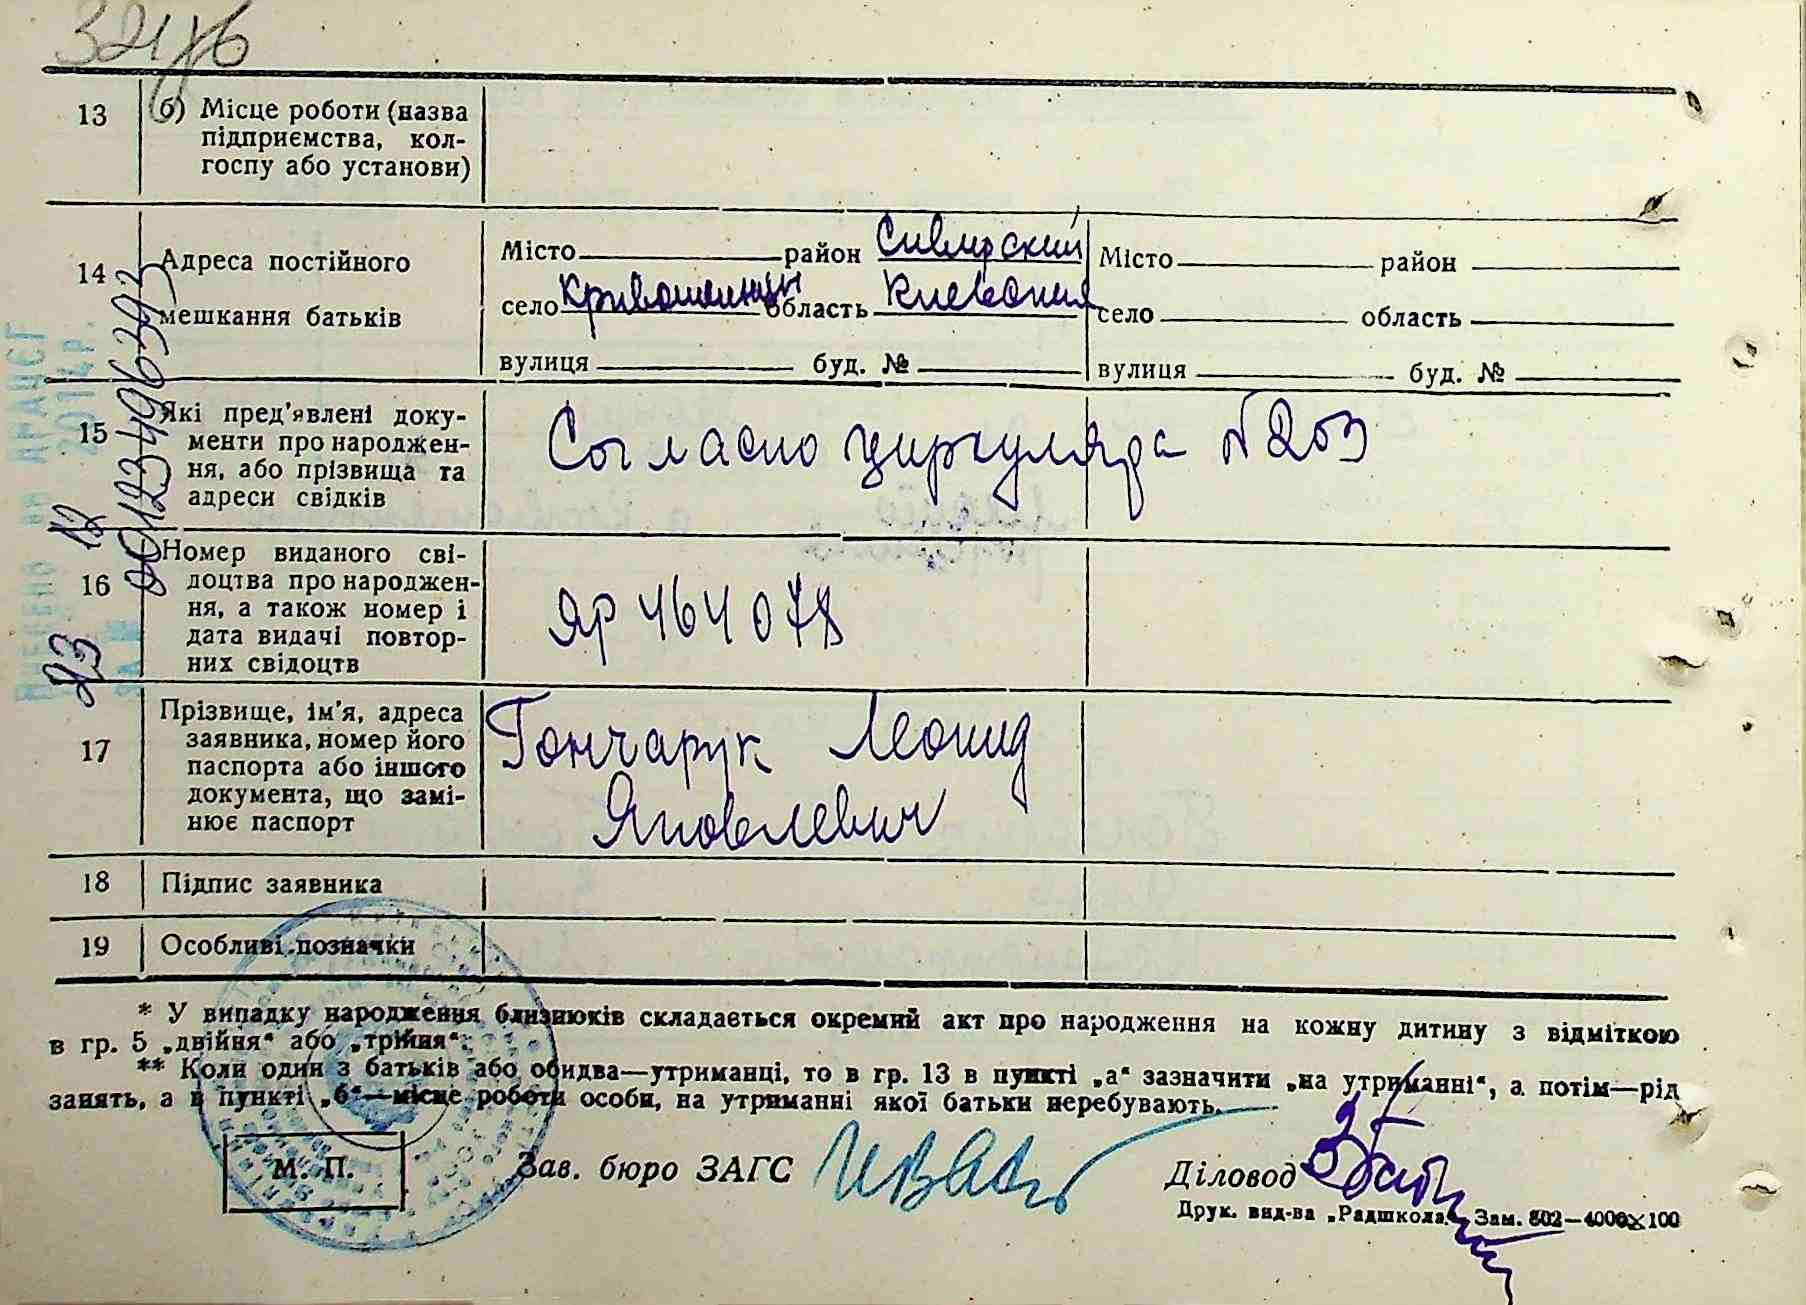 13 б) Місце роботи (назва
підприємства, кол-
госпу або установи)
14 Адреса постійного
мешкання батьків
Місто район Сквирский
село Кривошеинцы область Киевския
вулиця буд. №
Місто район
село область
вулиця буд. №
15 Які пред'явлені доку-
менти про народжен-
ня, або прізвища та
адреси свідків
Согласно циркуляра №203
16 Номер виданого сві-
доцтва про народжен-
ня, а також номер і
дата видачі повтор-
них свідоцтв
ЯР 464078
17 Прізвище, ім'я, адреса
заявника, номер його
паспорта або іншого
документа, що замі-
нює паспорт
Гончарук Леонид
Яковлевич
18 Підпис заявника
19 Особливі позначки
* У випадку народження близнюків складається окремий акт про народження на кожну дитину з відміткою
в гр. 5 „двійня“ або „трійня“.
** Коли один з батьків або обидва—утриманці, то в гр. 13 в пункті „а“ зазначити „на утриманні“, а потім—рід
занять, а в пункті „б“—місце роботи особи, на утриманні якої батьки перебувають.
М. П. Зав. бюро ЗАГС Діловод
Друк. вид-ва „Радшкола“. Зам. 802—4000×100
ВНЕСЕНО ДО ДРАЦСГ
23 12 2014 р.
ЗА №
00123496393